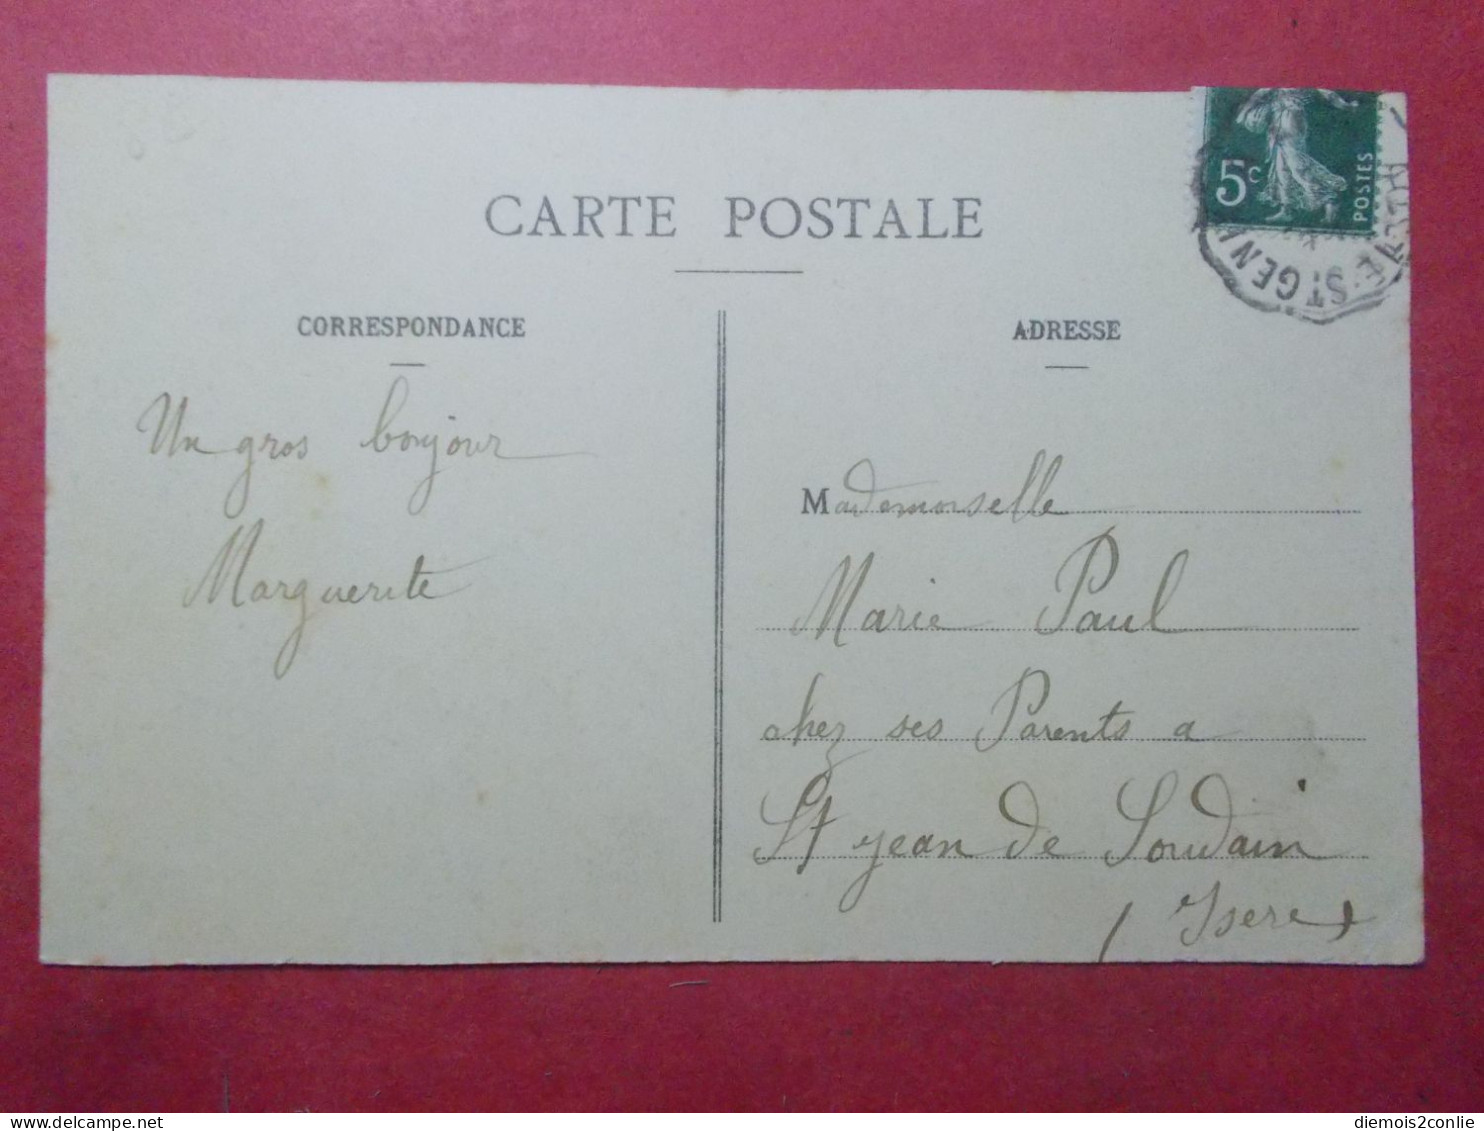 CARTE POSTALE
CORRESPONDANCE
Un gros bonjour
Marguerite
ADRESSE
Mademoiselle
Marie Paul
chez ses Parents a
St jean de Soudain
(Isere)
5c
POSTES
ST GEN
diemois2conlie